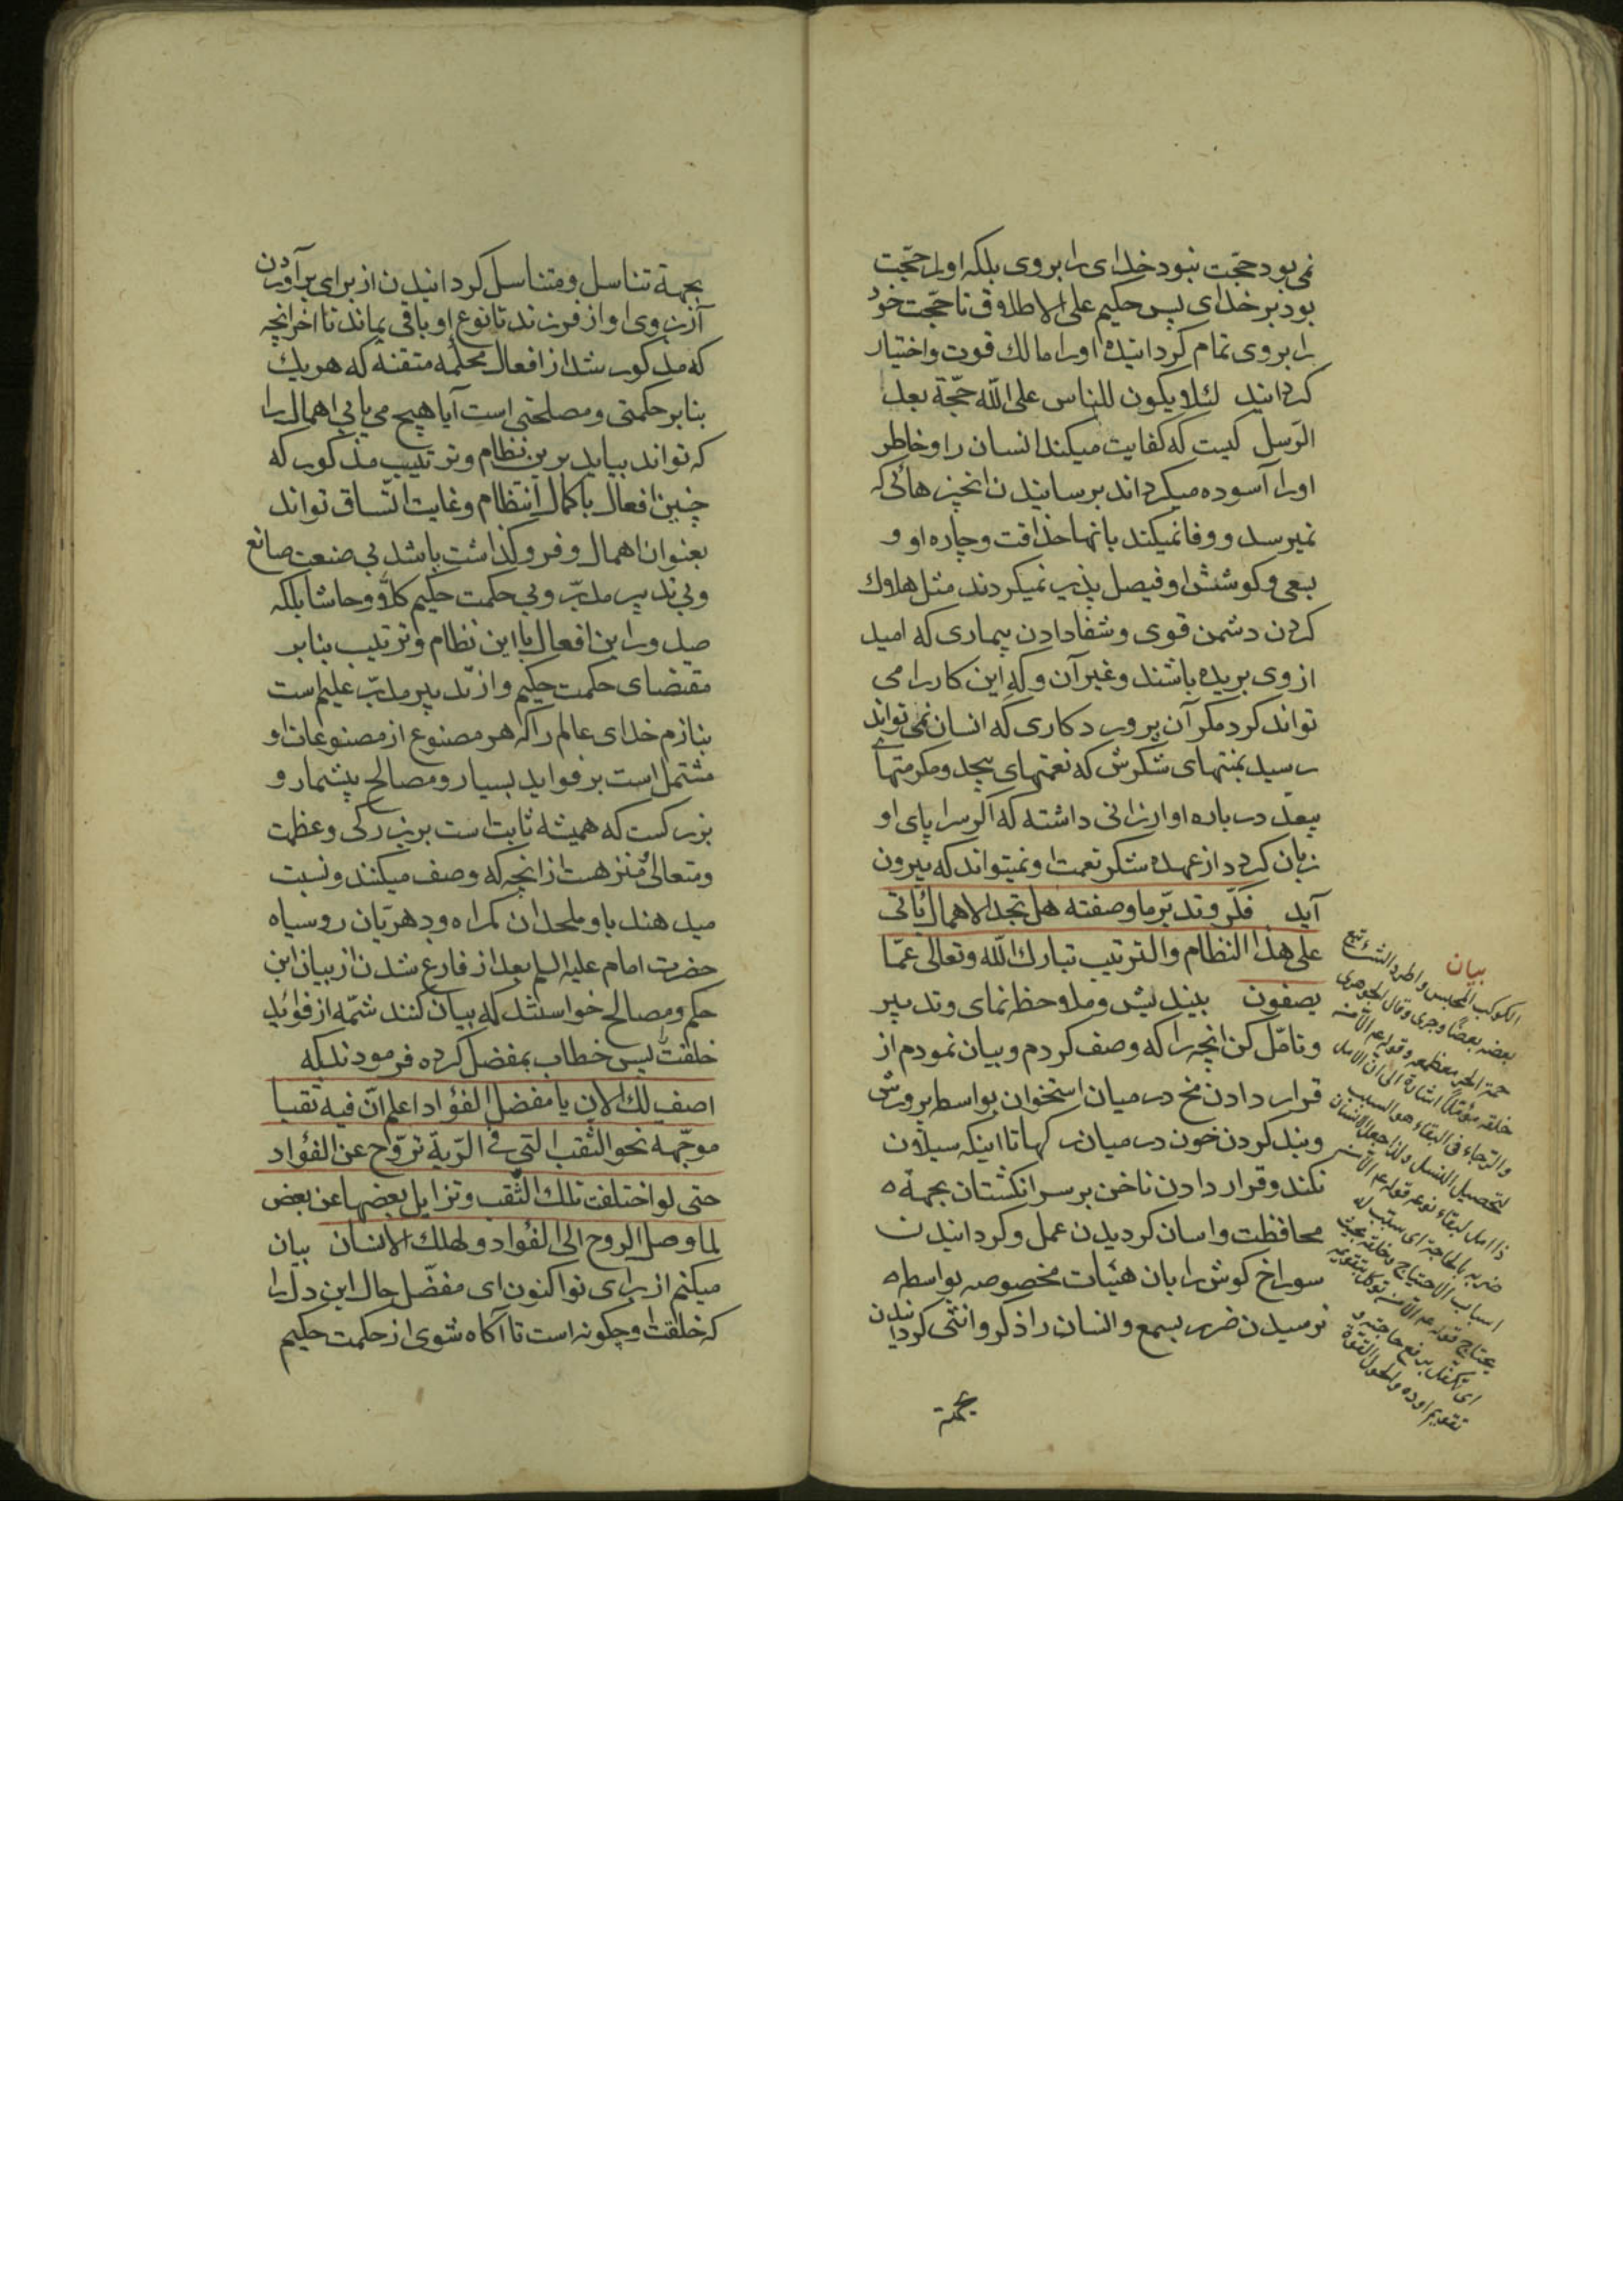 نمی بود حجّت نبود خدای را بر وی بلکه او را حجّت
بود بر خدای پس حکیم علی الاطلاق تا حجّت خود
را بر وی تمام کردانیده او را مالك قوت و اختیار
کردانید لئلا یکون للناس علی اللّه حجّة بعد
الرّسل کیست که کفایت میکند انسان را و خاطر
او را آسوده میکرداند برسانیدن انچیزهائی که
نمیرسد و وفا نمیکند بانها حذاقت و چاره او و
سعی و کوشش او فیصل پذیر نمیکردند مثل هلاك
کردن دشمن قوی و شفا دادن بیماری که امید
از وی بریده باشند و غیر آن و که این کار را می
تواند کرد مکر آن پروردکاری که انسان نمی تواند
رسید بمنتهای شکرش که نعمتهای بیحد و مکرمتهای
بیعد در باره او ارزانی داشته که اکر سرا پای او
زبان کردد از عهده شکر نعمت او نمیتواند که بیرون
آید فکّر و تدبّر ما وصفته هل تجد الاهمال یأتی
علی هذا النظام والترتیب تبارك اللّه وتعالی عمّا
یصفون بیندیش و ملاحظه نمای و تدبیر
و تامّل کن انچه را که وصف کردم و بیان نمودم از
قرار دادن مخ در میان استخوان بواسطه پرورش
و بند کردن خون در میان رکها تا اینکه سیلان
نکند و قرار دادن ناخن بر سر انکشتان بجهة
محافظت و اسان کردیدن عمل و کردانیدن
سوراخ کوش را بان هیئات مخصوصه بواسطه
نرسیدن ضرر بسمع و انسان را ذکر و انثی کردانیدن
بجهة
بیان
الکوکب المجلس واطرد الشئ تبع
بعضه بعضًا وجری وقال الجوهری
حمة الحر معظمه وقوله عم الآمنه
خلقه مؤمّلاً اشارة الی ان الامل
والرّجاء فی البقاء هو السبب
لتحصیل النسل ولذا جعل الانسان
ذا امل لبقاء نوعه قوله عم الآمن
ضربه بالحاجة ای سبّب له
اسباب الاحتیاج وخلقه بحیث
یحتاج قوله عم الآمن توکل بتقویمه
ای تکفّل برفع حاجته و
تقویم اوده والحول القوّة
بجهة تناسل و متناسل کردانیدن از برای برآوردن
آرزوی او از فرزند تا نوع او باقی بماند تا اخر انچه
که مذکور شد از افعال محکمه متقنه که هر یك
بنابر حکمتی و مصلحتی است آیا هیچ می یابی اهمال را
که تواند بیاید برین نظام و ترتیب مذکور که
چنین افعال با کمال انتظام و غایت اتّساق تواند
بعنوان اهمال و فروکذاشت باشد بی صنعت صانع
و بی تدبیر مدبّر و بی حکمت حکیم کلاّ و حاشا بلکه
صدور این افعال با این نظام و ترتیب بنابر
مقتضای حکمت حکیم و از تدبیر مدبّر علیم است
بنازم خدای عالم را که هر مصنوع از مصنوعات او
مشتمل است بر فواید بسیار و مصالح بیشمار و
بزرکست که همیشه ثابت است بر بزرکی و عظمت
و متعالی و منزهست از انچه که وصف میکنند و نسبت
میدهند باو ملحدان کمراه و دهریّان روسیاه
حضرت امام علیه السلم بعد از فارغ شدن از بیان این
حکم و مصالح خواستند که بیان کنند شمّه از فوائد
خلقت پس خطاب بمفضل کرده فرمودند که
اصف لك الان یا مفضل الفؤاد اعلم انّ فیه ثقبا
موجّهة نحو الثقب التی فی الرّیة تروّح عن الفؤاد
حتی لو اختلفت تلك الثقب وتزایل بعضها عن بعض
لما وصل الروح الی الفؤاد ولهلك الانسان بیان
میکنم از برای تو اکنون ای مفضّل حال این دل را
که خلقت او چکونه است تا آکاه شوی از حکمت حکیم